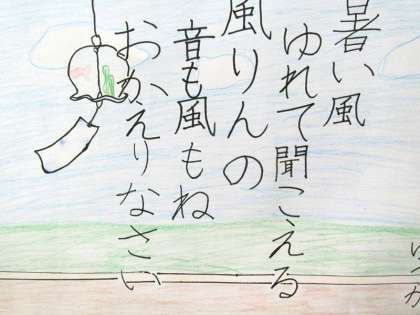 暑い風
ゆれて聞こえる
風りんの
音も風もね
おかえりなさい